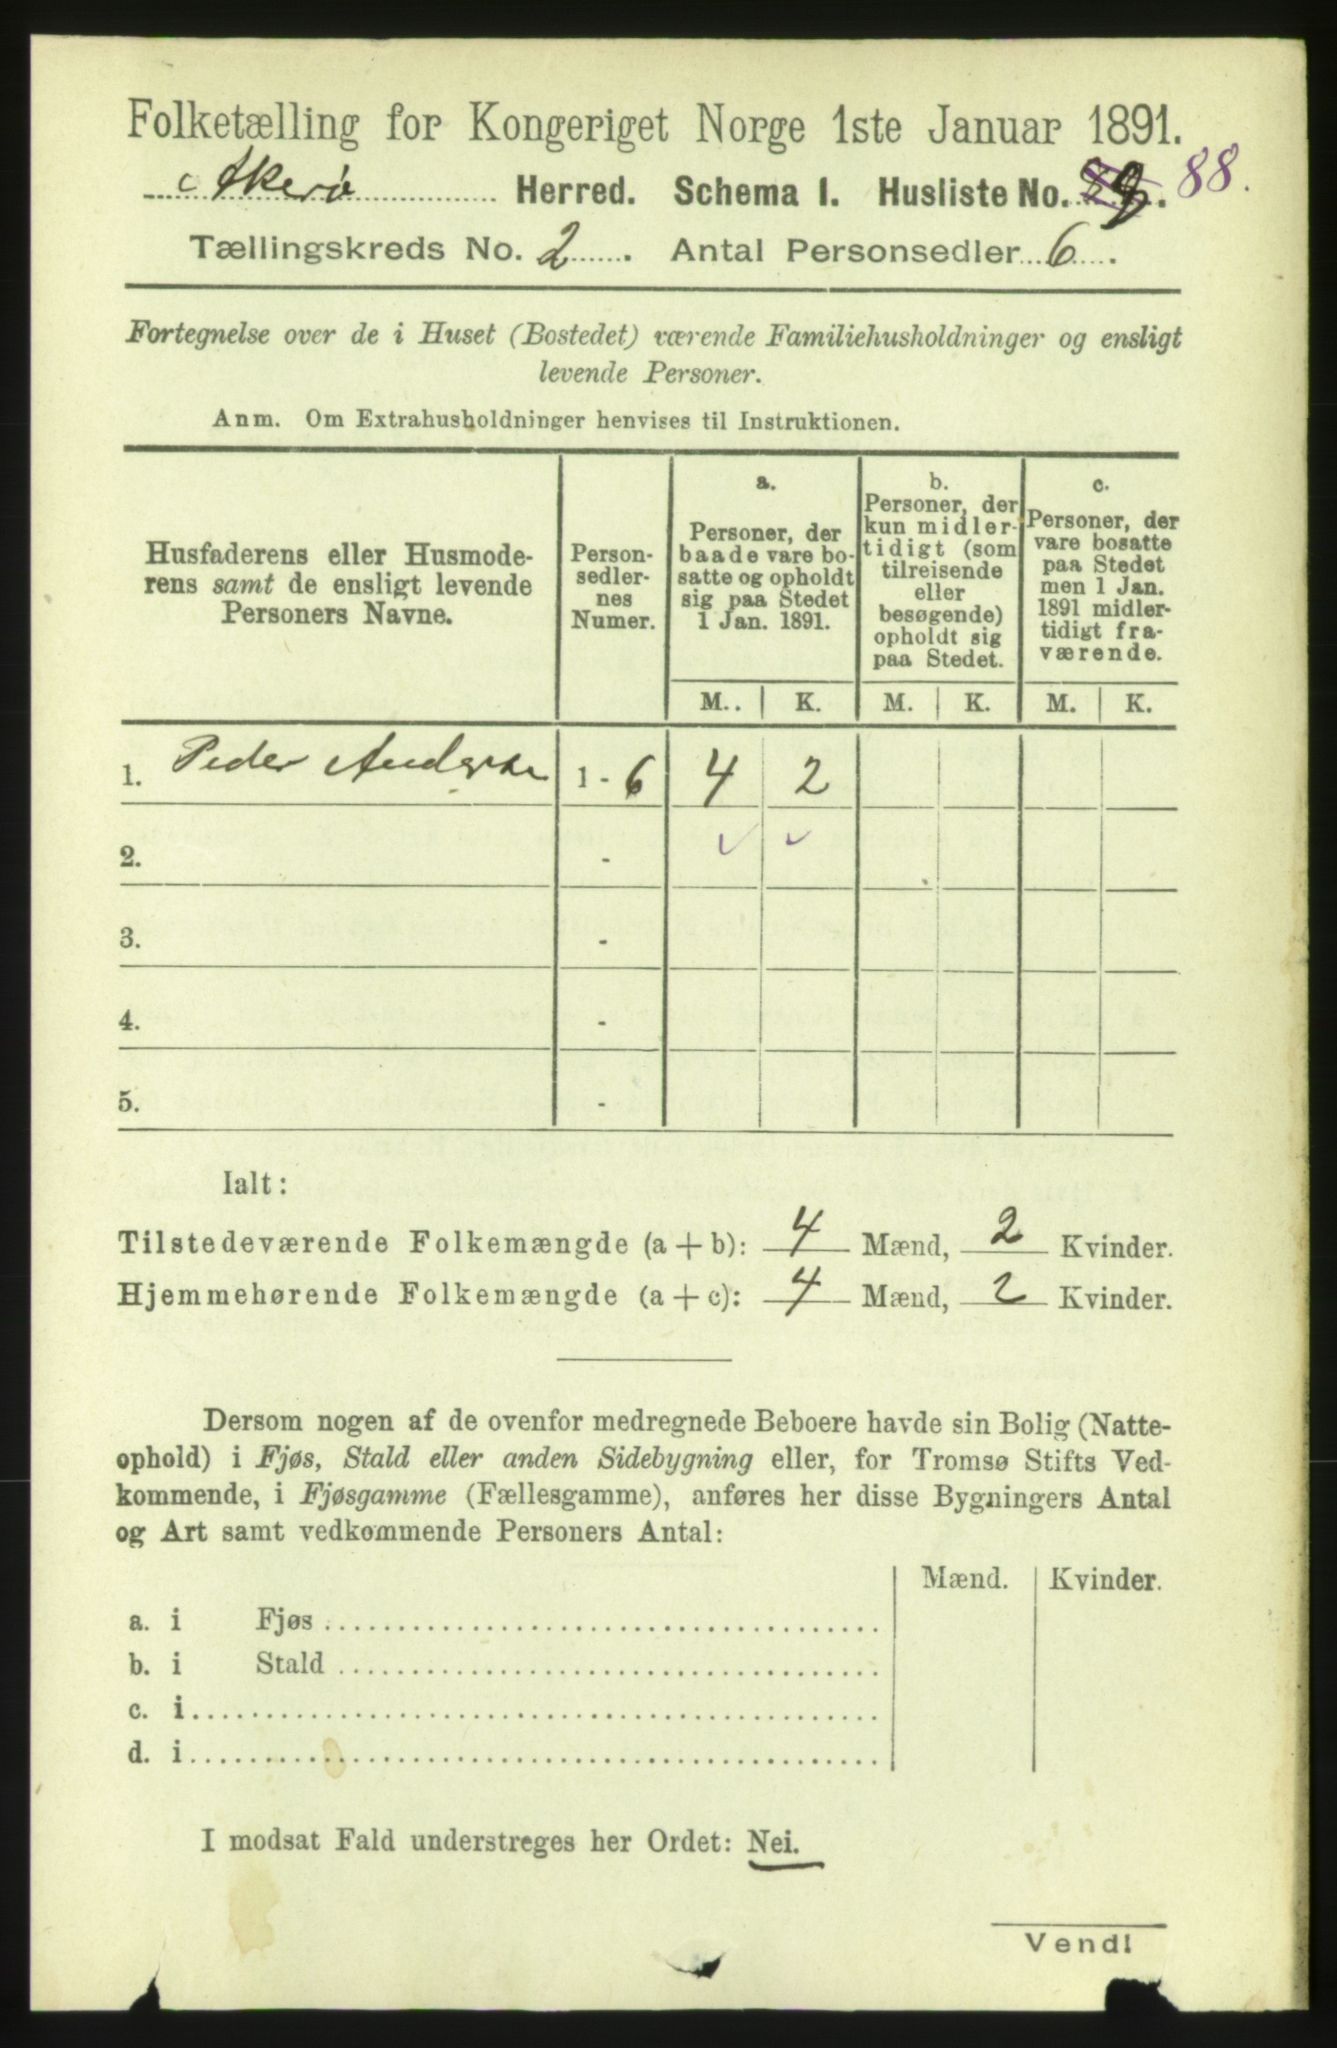 Folketælling for Kongeriget Norge 1ste Januar 1891.
Akerø Herred. Schema I. Husliste No. 88.
Tællingskreds No. 2. Antal Personsedler 6.
Fortegnelse over de i Huset (Bostedet) værende Familiehusholdninger og ensligt
levende Personer.
Anm. Om Extrahusholdninger henvises til Instruktionen.
Husfaderens eller Husmode-
rens samt de ensligt levende
Personers Navne.
Person-
sedler-
nes
Numer.
a.
Personer, der
baade vare bo-
satte og opholdt
sig paa Stedet
1 Jan. 1891.
b.
Personer, der
kun midler-
tidigt (som
tilreisende
eller
besøgende)
opholdt sig
paa Stedet.
c.
Personer, der
vare bosatte
paa Stedet
men 1 Jan.
1891 midler-
tidigt fra-
værende.
M. K. M. K. M. K.
1. Peder Andersen 1 - 6 4 2
2. -
3. -
4. -
5. -
Ialt:
Tilstedeværende Folkemængde (a + b): 4 Mænd, 2 Kvinder.
Hjemmehørende Folkemængde (a + c): 4 Mænd, 2 Kvinder.
Dersom nogen af de ovenfor medregnede Beboere havde sin Bolig (Natte-
ophold) i Fjøs, Stald eller anden Sidebygning eller, for Tromsø Stifts Ved-
kommende, i Fjøsgamme (Fællesgamme), anføres her disse Bygningers Antal
og Art samt vedkommende Personers Antal:
Mænd. Kvinder.
a. i Fjøs
b. i Stald
c. i
d. i
I modsat Fald understreges her Ordet: Nei.
Vend!